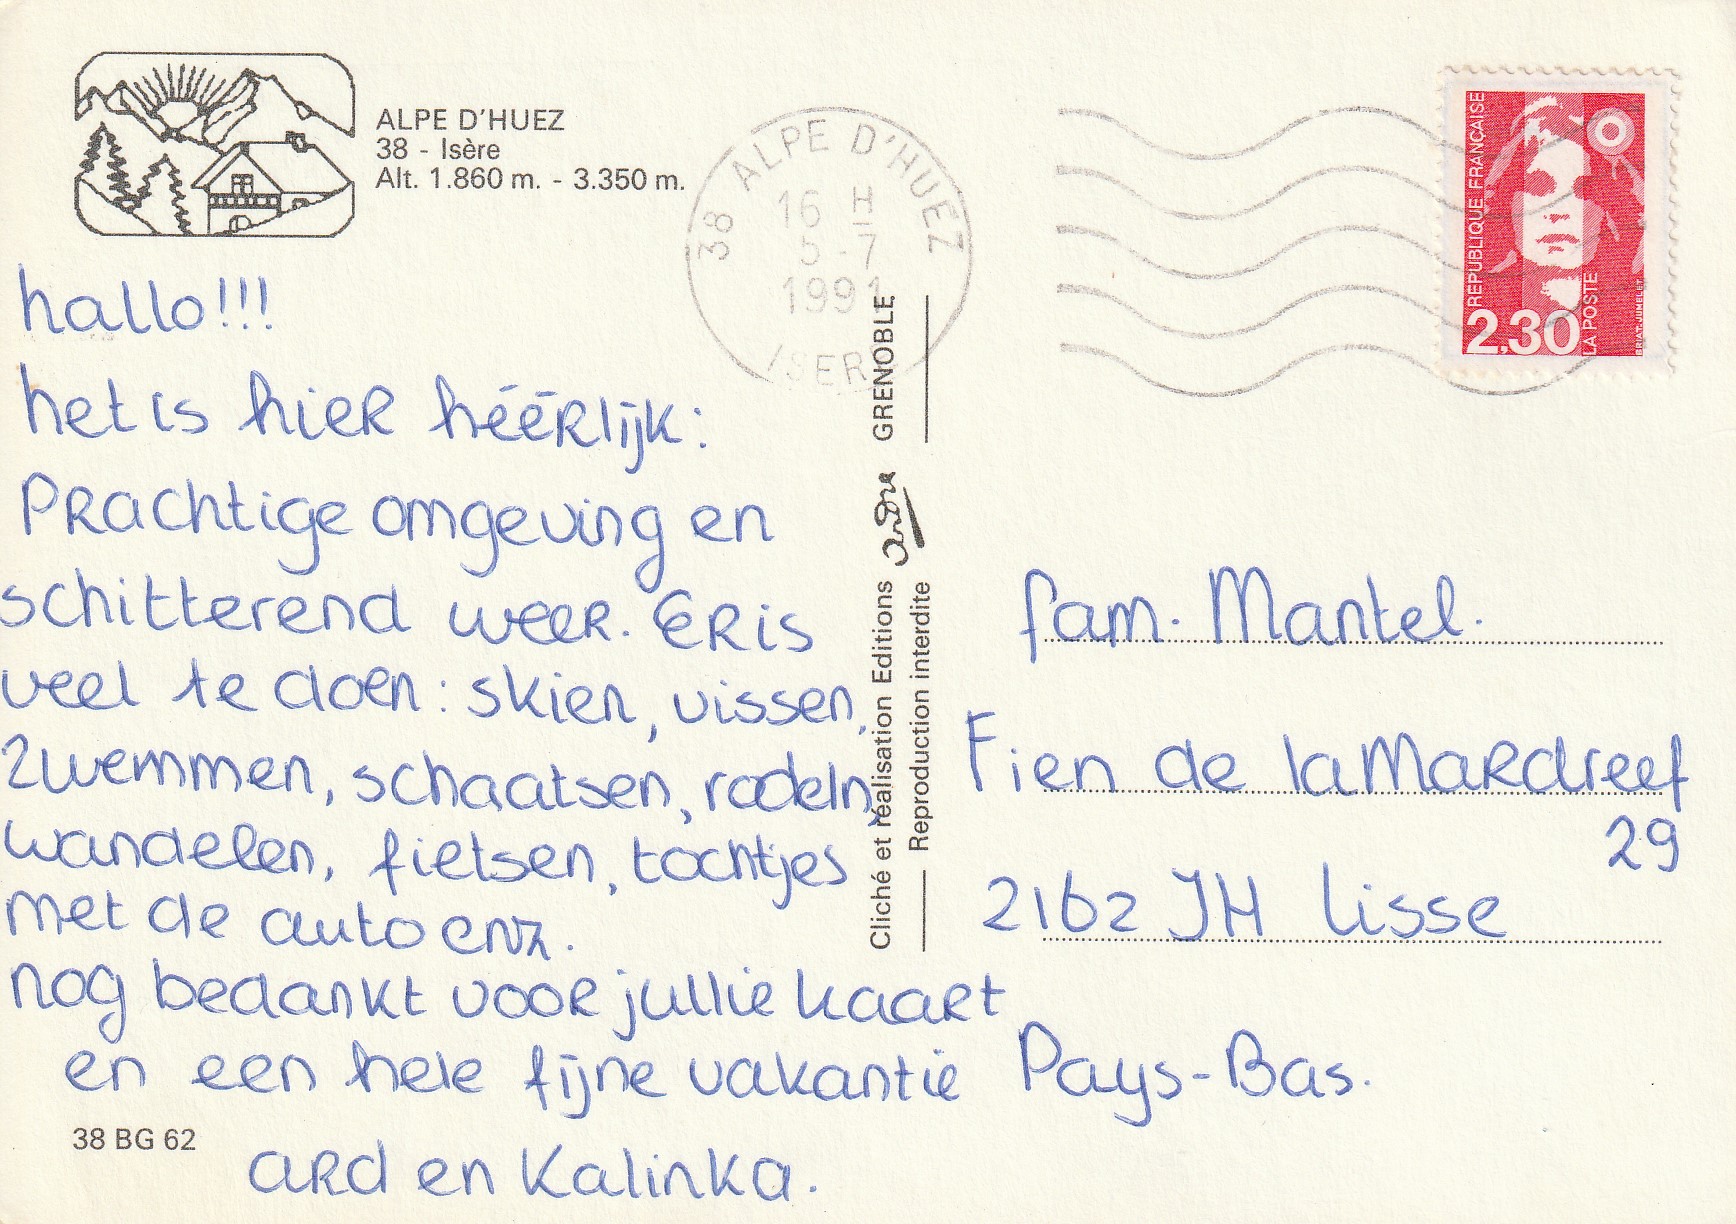 ALPE D'HUEZ
38 - Isère
Alt. 1.860 m. - 3.350 m.
38 ALPE D'HUEZ
16 H
5 -7
1991
ISERE
RÉPUBLIQUE FRANÇAISE
2,30
LA POSTE
BRIAT. JUMELET
hallo!!!
het is hier héérlijk:
Prachtige omgeving en
schitterend weer. Er is
veel te doen: skien, vissen,
zwemmen, schaatsen, rodeln,
wandelen, fietsen, tochtjes
met de auto enz.
nog bedankt voor jullie kaart
en een hele fijne vakantie
Ard en Kalinka.
38 BG 62
Cliché et réalisation Editions André GRENOBLE
Reproduction interdite
fam. Mantel.
Fien de la Mardreef
29
2162 JH Lisse
Pays-Bas.